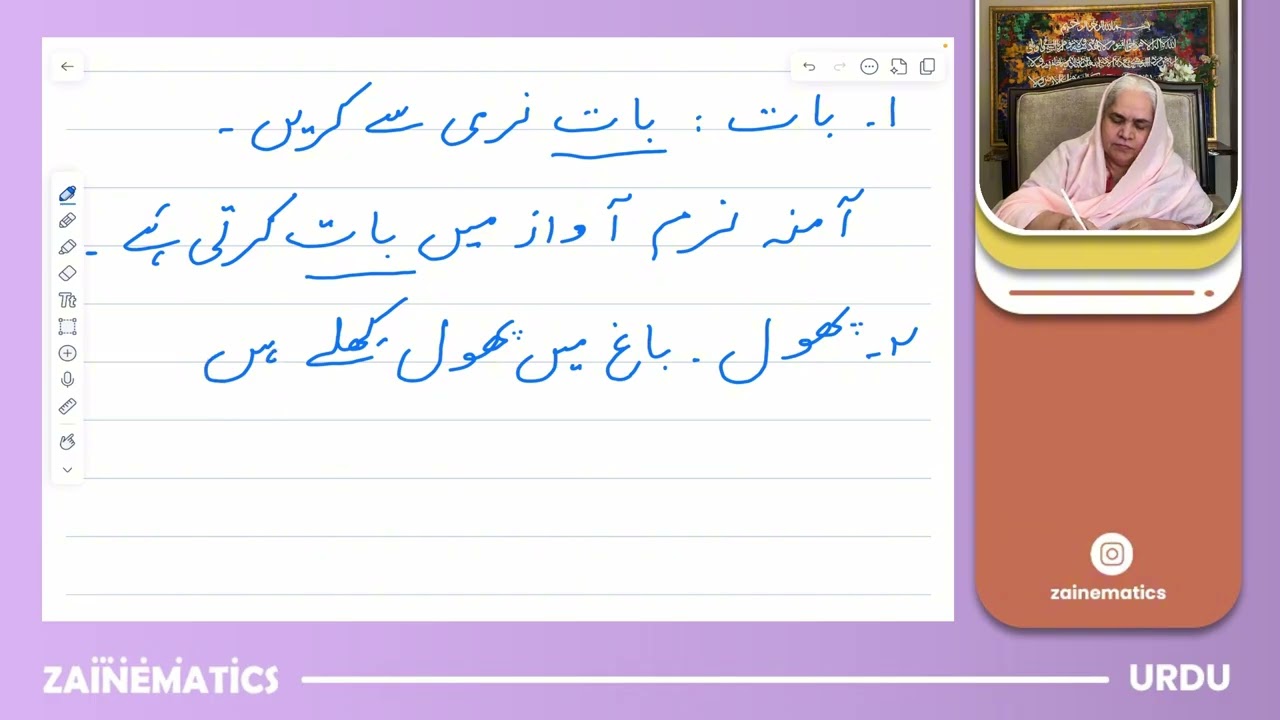 ۱۔ بات : بات نرمی سے کریں ۔
آمنہ نرم آواز میں بات کرتی ہے ۔
۲۔ پھول ۔ باغ میں پھول کھلے ہیں
Tt
zainematics
ZAINEMATICS
URDU